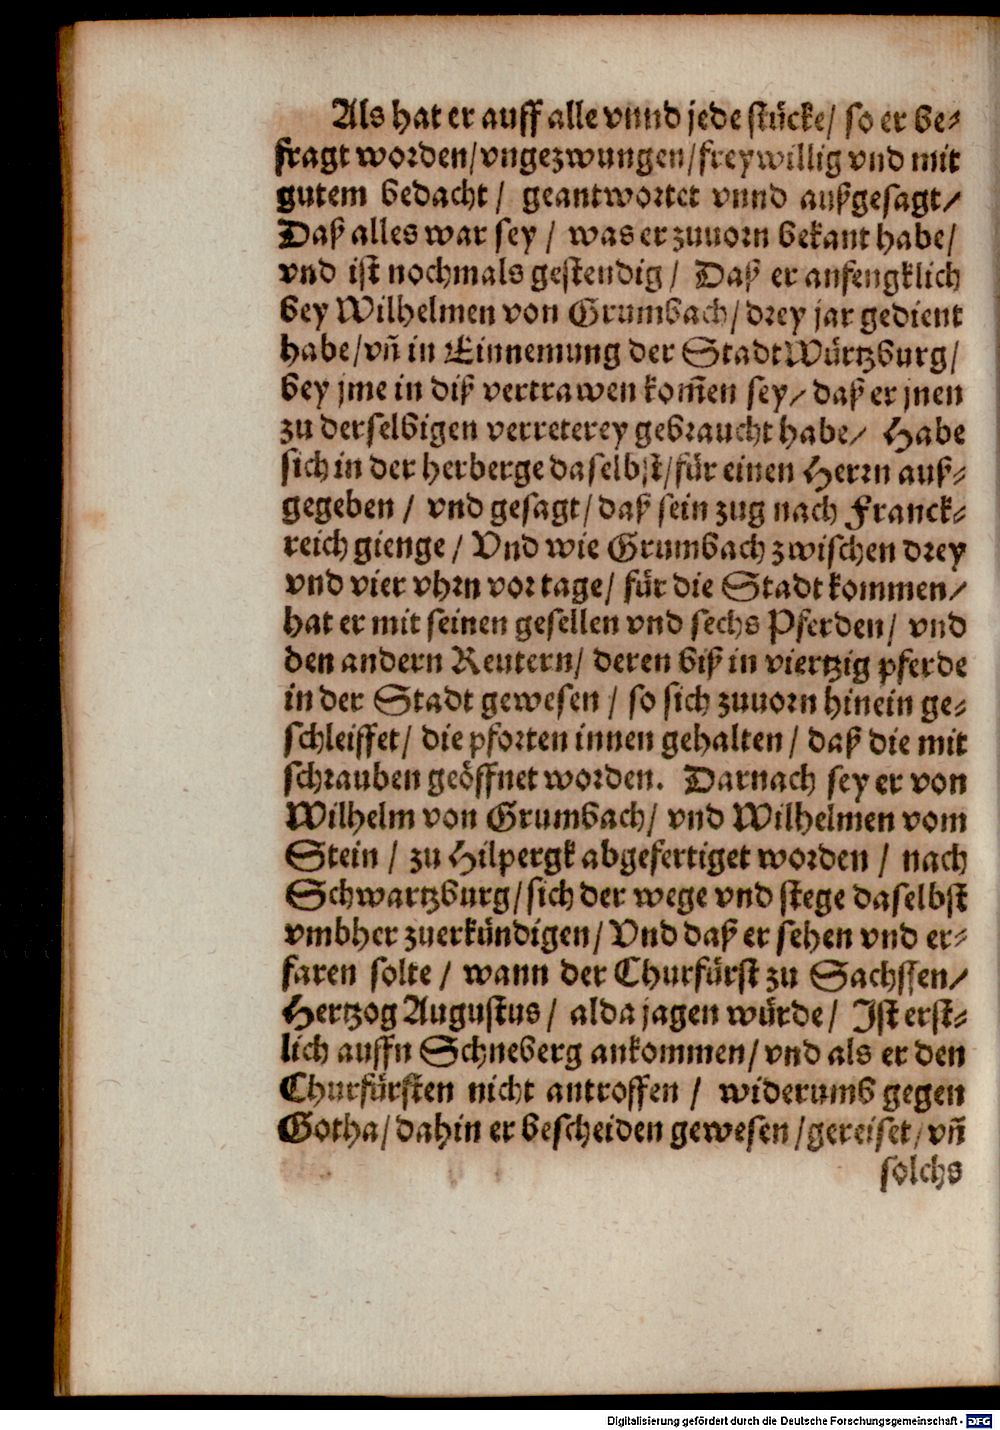 Als hat er auff alle vnnd jede stücke/ so er be-
fragt worden/vngezwungen/freywillig vnd mit
gutem bedacht/ geantwortet vnnd außgesagt/
Daß alles war sey/ was er zuuorn bekant habe/
vnd ist nochmals gestendig/ Daß er anfengklich
bey Wilhelmen von Grumbach/drey jar gedient
habe/vn̄ in Einnemung der Stadt Würtzburg/
bey jme in diß vertrawen kom̄en sey/ daß er jnen
zu derselbigen verreterey gebraucht habe/ Habe
sich in der herberge daselbst/für einen Herrn auß-
gegeben/ vnd gesagt/daß sein zug nach Franck-
reich gienge/ Vnd wie Grumbach zwischen drey
vnd vier vhrn vor tage/ für die Stadt kommen/
hat er mit seinen gesellen vnd sechs Pferden/ vnd
den andern Reutern/ deren biß in viertzig pferde
in der Stadt gewesen/ so sich zuuorn hinein ge-
schleiffet/ die pforten innen gehalten/ daß die mit
schrauben geöffnet worden. Darnach sey er von
Wilhelm von Grumbach/ vnd Wilhelmen vom
Stein/ zu Hilpergk abgefertiget worden/ nach
Schwartzburg/sich der wege vnd stege daselbst
vmbher zuerkündigen/ Vnd daß er sehen vnd er-
faren solte/ wann der Churfürst zu Sachssen/
Hertzog Augustus/ alda jagen würde/ Ist erst-
lich auffn Schneberg ankommen/vnd als er den
Churfürsten nicht antroffen/ widerumb gegen
Gotha/dahin er bescheiden gewesen/gereiset/vn̄
solchs
Digitalisierung gefördert durch die Deutsche Forschungsgemeinschaft - DFG